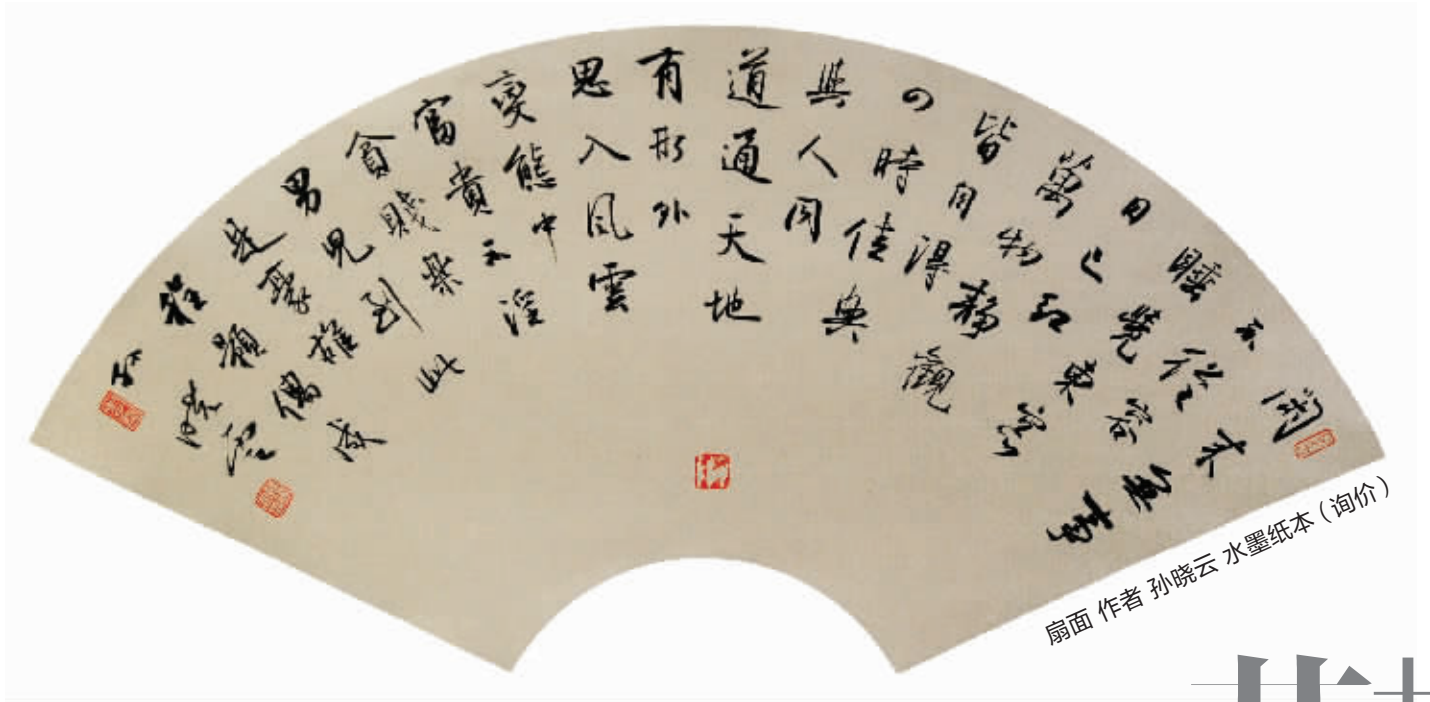 閑来無事
不從容
睡覺東窗
日已紅
萬物靜觀
皆自得
四時佳興
與人同
道通天地
有形外
思入風雲
變態中
富貴不淫
貧賤樂
男兒到此
是豪雄
程顥偶成
孫曉雲
扇面 作者 孙晓云 水墨纸本（询价）